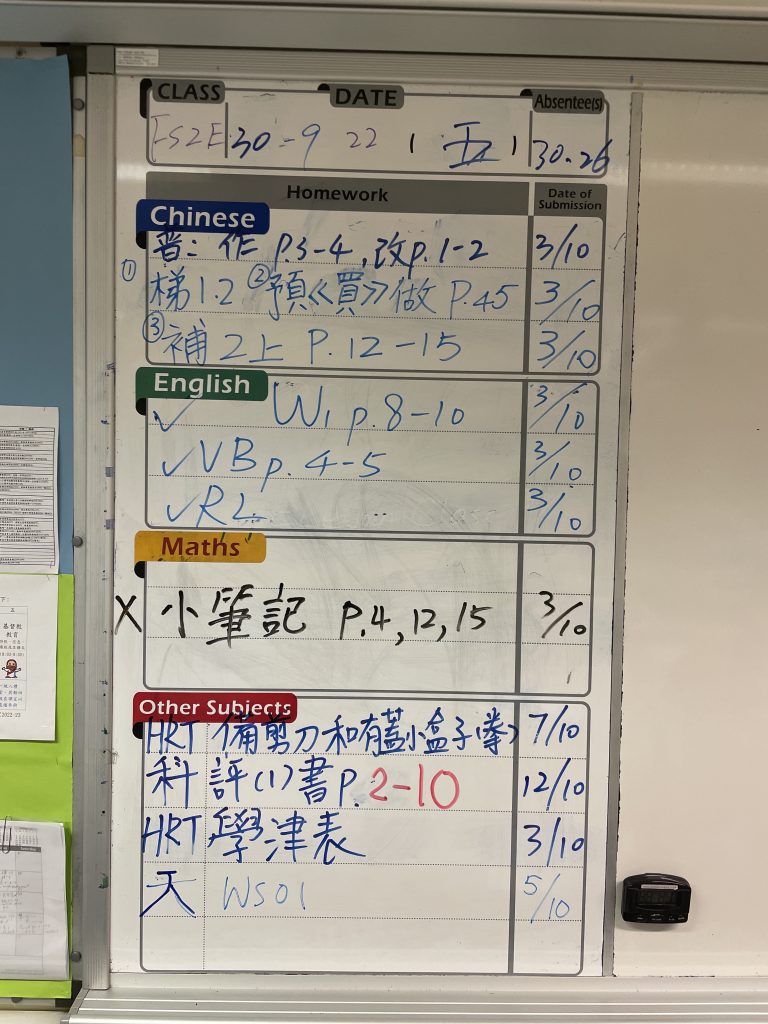 CLASS DATE Absentee(s)
30-9 22 (五) 30.26
Homework Date of Submission
Chinese
普: 作 p.3-4, 改p.1-2 3/10
① 梯1.2 ②預《買》做 P.45 3/10
③補2上 P.12-15 3/10
English
✓ W1 p.8-10 3/10
✓VB p.4-5 3/10
✓RL 3/10
Maths
X 小筆記 P.4,12,15 3/10
Other Subjects
HRT 備剪刀和有蓋小盒子 7/10
科 評(1)書p.2-10 12/10
HRT 學津表 3/10
天 WS01 5/10
基督教
教育
2022-23